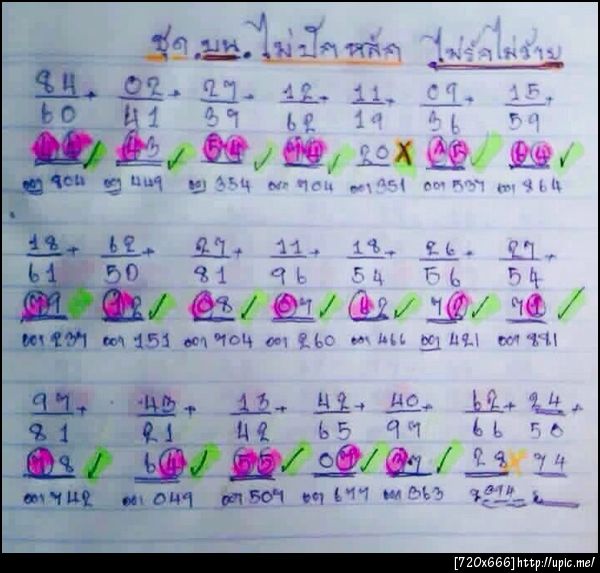 ชุด.บน.ไม่ปัดหลัก ไม่รักไม่ว่าย
84+ 02+ 27+ 12+ 11+ 09+ 15+
60 41 39 62 19 36 59
44 43 54 74 20 X 45 64
ออก 804 ออก 449 ออก 354 ออก 704 ออก 351 ออก 537 ออก 864
18+ 62+ 27+ 11+ 18+ 26+ 27+
61 50 81 96 54 56 54
79 12 08 07 62 72 71
ออก 237 ออก 151 ออก 704 ออก 260 ออก 466 ออก 421 ออก 881
97+ 43+ 13+ 42+ 40+ 62+ 24+
81 21 42 65 97 66 50
78 64 55 07 37 28 X 74
ออก 742 ออก 049 ออก 507 ออก 677 ออก 363
[720x666]http://upic.me/